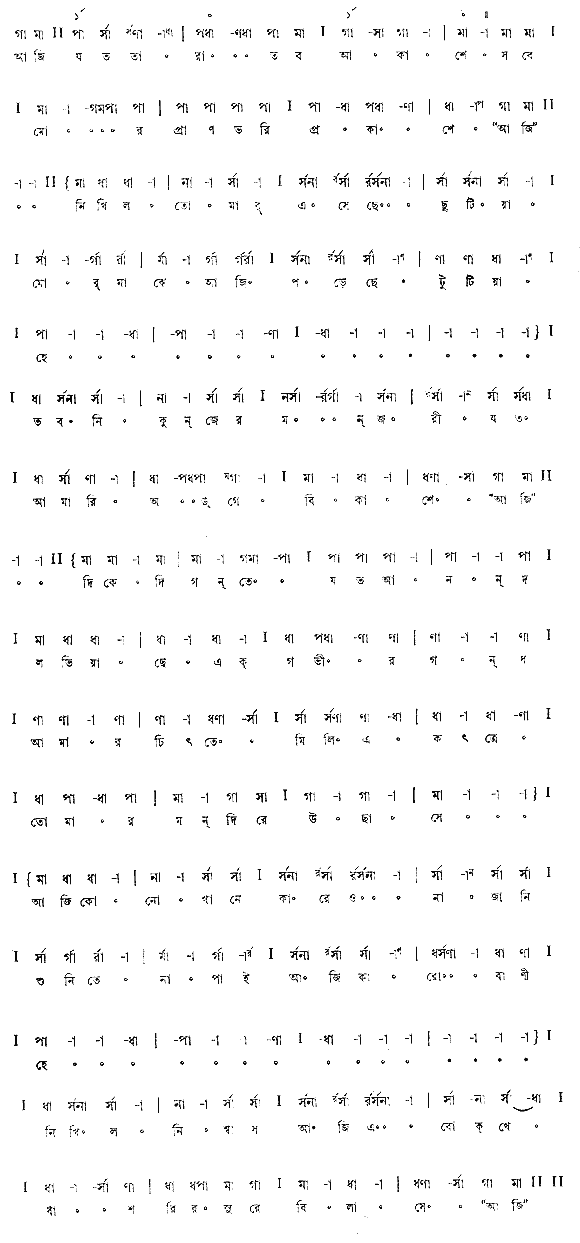 ১´ ০ ১´ ০ ॥
গা মা II পা র্সা র্সণা -ণধা | পধা -ণধা পা মা I গা -সা গা -া | মা -া মা মা I
আ জি য ত তা ০ রা ০ ০ ০ ত ব আ ০ কা ০ শে ০ স বে
I মা -া -গমপা পা | পা পা পা পা I পা -ধা পধা -ণা | ধা -াপ গা মা II
মো ০ ০ ০ ০ র প্রা ণ ভ রি প্র ০ কা ০ ০ শে ০ "আ জি"
-া -া II { মা ধা ধা -া | না -া র্সা -া I র্সনা র্রর্সা র্রর্সনা -া | র্সা র্সনা র্সা -া I
০ ০ নি খি ল ০ তো ০ মা র্ এ ০ সে ছে০ ০ ছু টি ০ য়া ০
I র্সা -া -র্গা র্রা | র্মা -া র্গা র্গর্রা I র্সনা র্রর্সা র্সা -াণ | ণা ণা ধা -াপ I
মো ০ র্ মা ঝে ০ আ জি০ প ০ ড়ে ছে ০ টু টি য়া ০
I পা -া -া -ধা | -পা -া -া -ণা I -ধা -া -া -া | -া -া -া -া } I
হে ০ ০ ০ ০ ০ ০ ০ ০ ০ ০ ০ ০ ০ ০ ০
I ধা র্সনা র্সা -া | না -া র্সা র্সা I নর্সা -র্রর্গা -া র্সনা | র্রর্সা -াণ র্সা র্সধা I
ত ব ০ নি ০ কু ন্ জে র ম ০ ০ ০ ন্ জ ০ রী ০ য ত০
I ধা র্সা ণা -া | ধা -পধপা মগা -া I মা -া ধা -া | ধণা -র্সা গা মা II
আ মা রি ০ অ ০ ০ ঙ্ গে ০ বি ০ কা ০ শে ০ ০ "আ জি"
-া -া II { মা মা -া মা | মা -া গমা -পা I পা পা পা -া | পা -া -া পা I
০ ০ দি কে ০ দি গ ন্ তে০ ০ য ত আ ০ ন ০ ন্ দ
I মা ধা ধা -া | ধা -া ধা -া I ধা পধা -ণা ণা | ণা -া -া ণা I
ল ভি য়া ০ ছে ০ এ ক্ গ ভী০ ০ র গ ০ ন্ ধ
I ণা ণা -া ণা | ণা -া ধণা -র্সা I র্সা র্সণা ণা -ধা | ধা -া ধা -ণা I
আ মা ০ র চি ৎ তে০ ০ মি লি০ এ ০ ক ৎ ত্রে ০
I ধা পা -ধা পা | মা -া গা সা I গা -া গা -া | মা -া -া -া } I
তো মা ০ র ম ন্ দি রে উ ০ ছা ০ সে ০ ০ ০
I { মা ধা ধা -া | না -া র্সা র্সা I র্সনা র্রর্সা র্রর্সনা -া | র্সা -াণ র্সা র্সা I
আ জি কো ০ নো ০ খা নে কা ০ রে ও ০ ০ ০ না ০ জা নি
I র্সা র্গা র্রা -া | র্মা -া র্গা -ার্র I র্সনা র্রর্সা র্সা -াণ | ধর্সণা -া ধা ণা I
শু নি তে ০ না ০ পা ই আ ০ জি কা ০ রো ০ ০ ০ বা ণী
I পা -া -া -ধা | -পা -া -া -ণা I -ধা -া -া -া | -া -া -া -া } I
হে ০ ০ ০ ০ ০ ০ ০ ০ ০ ০ ০ ০ ০ ০ ০
I ধা র্সনা র্সা -া | না -া র্সা র্সা I র্সনা র্রর্সা র্রর্সনা -া | র্সা -না র্সা -ধা I
নি খি ০ ল ০ নি ০ শ্বা স আ ০ জি এ ০ ০ ০ বো ক্ ষে ০
I ধা -া -র্সা ণা | ধা ধপা মা গা I মা -া ধা -া | ধণা -র্সা গা মা II II
বাঁ ০ ০ শ রি র ০ সু রে বি ০ লা ০ সে ০ ০ "আ জি"